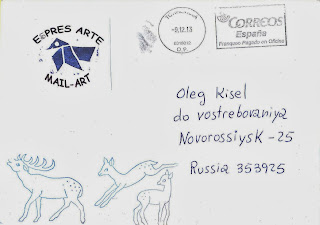 E PRES ARTE
MAIL-ART
-9.12.13
O.P.
CORREOS
España
Franqueo Pagado en Oficina
Oleg Kisel
do vostrebovaniya
Novorossiysk - 25
Russia 353925